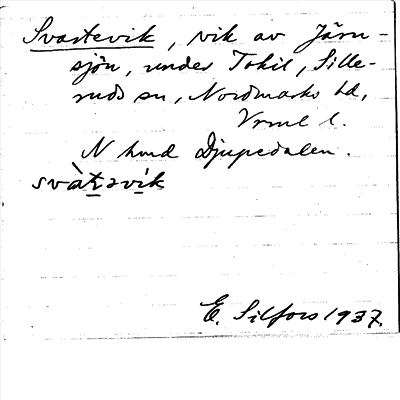 Svartevik, vik av Järn-
sjön, under Tokil, Sille-
ruds sn, Nordmarks hd,
Vrml l.
N hmd Djupedalen.
svàt̠əvi̠k
E. Silfors 1937.